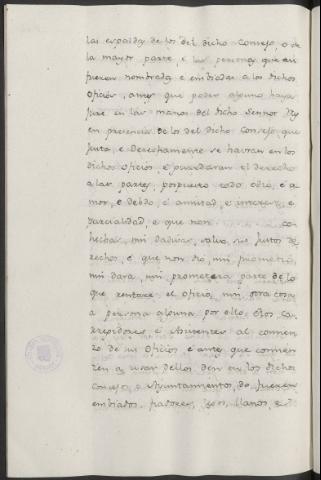 las espaldas de los del dicho Consejo, o de
la mayor parte, e las personas que asi
fueren nombradas e embiadas a los dichos
oficios, antes que poder alguno haya
jure en las manos del dicho Señor Rey
en presencia de los del dicho Consejo, que
justa, e derechamente se havran en los
dichos oficios, e guardaran el derecho
a las partes, pospuesto todo odio, e a-
mor, e debdo, e amistad, e interese, e
parcialidad, e que non con
hechas, nin dadivas, salvo sus justos de
rechos, e que non dio, nin prometió,
nin dara, nin prometera parte de lo
que rentare el oficio, nin otra cosa
a persona alguna por ello, e los Co-
rregidores, e Asistentes al comien
zo de sus oficios, e antes que comien
zen a usar dellos den en los dichos
Consejos, e Ayuntamientos, do fueren
embiados, fiadores, legos, llanos, e